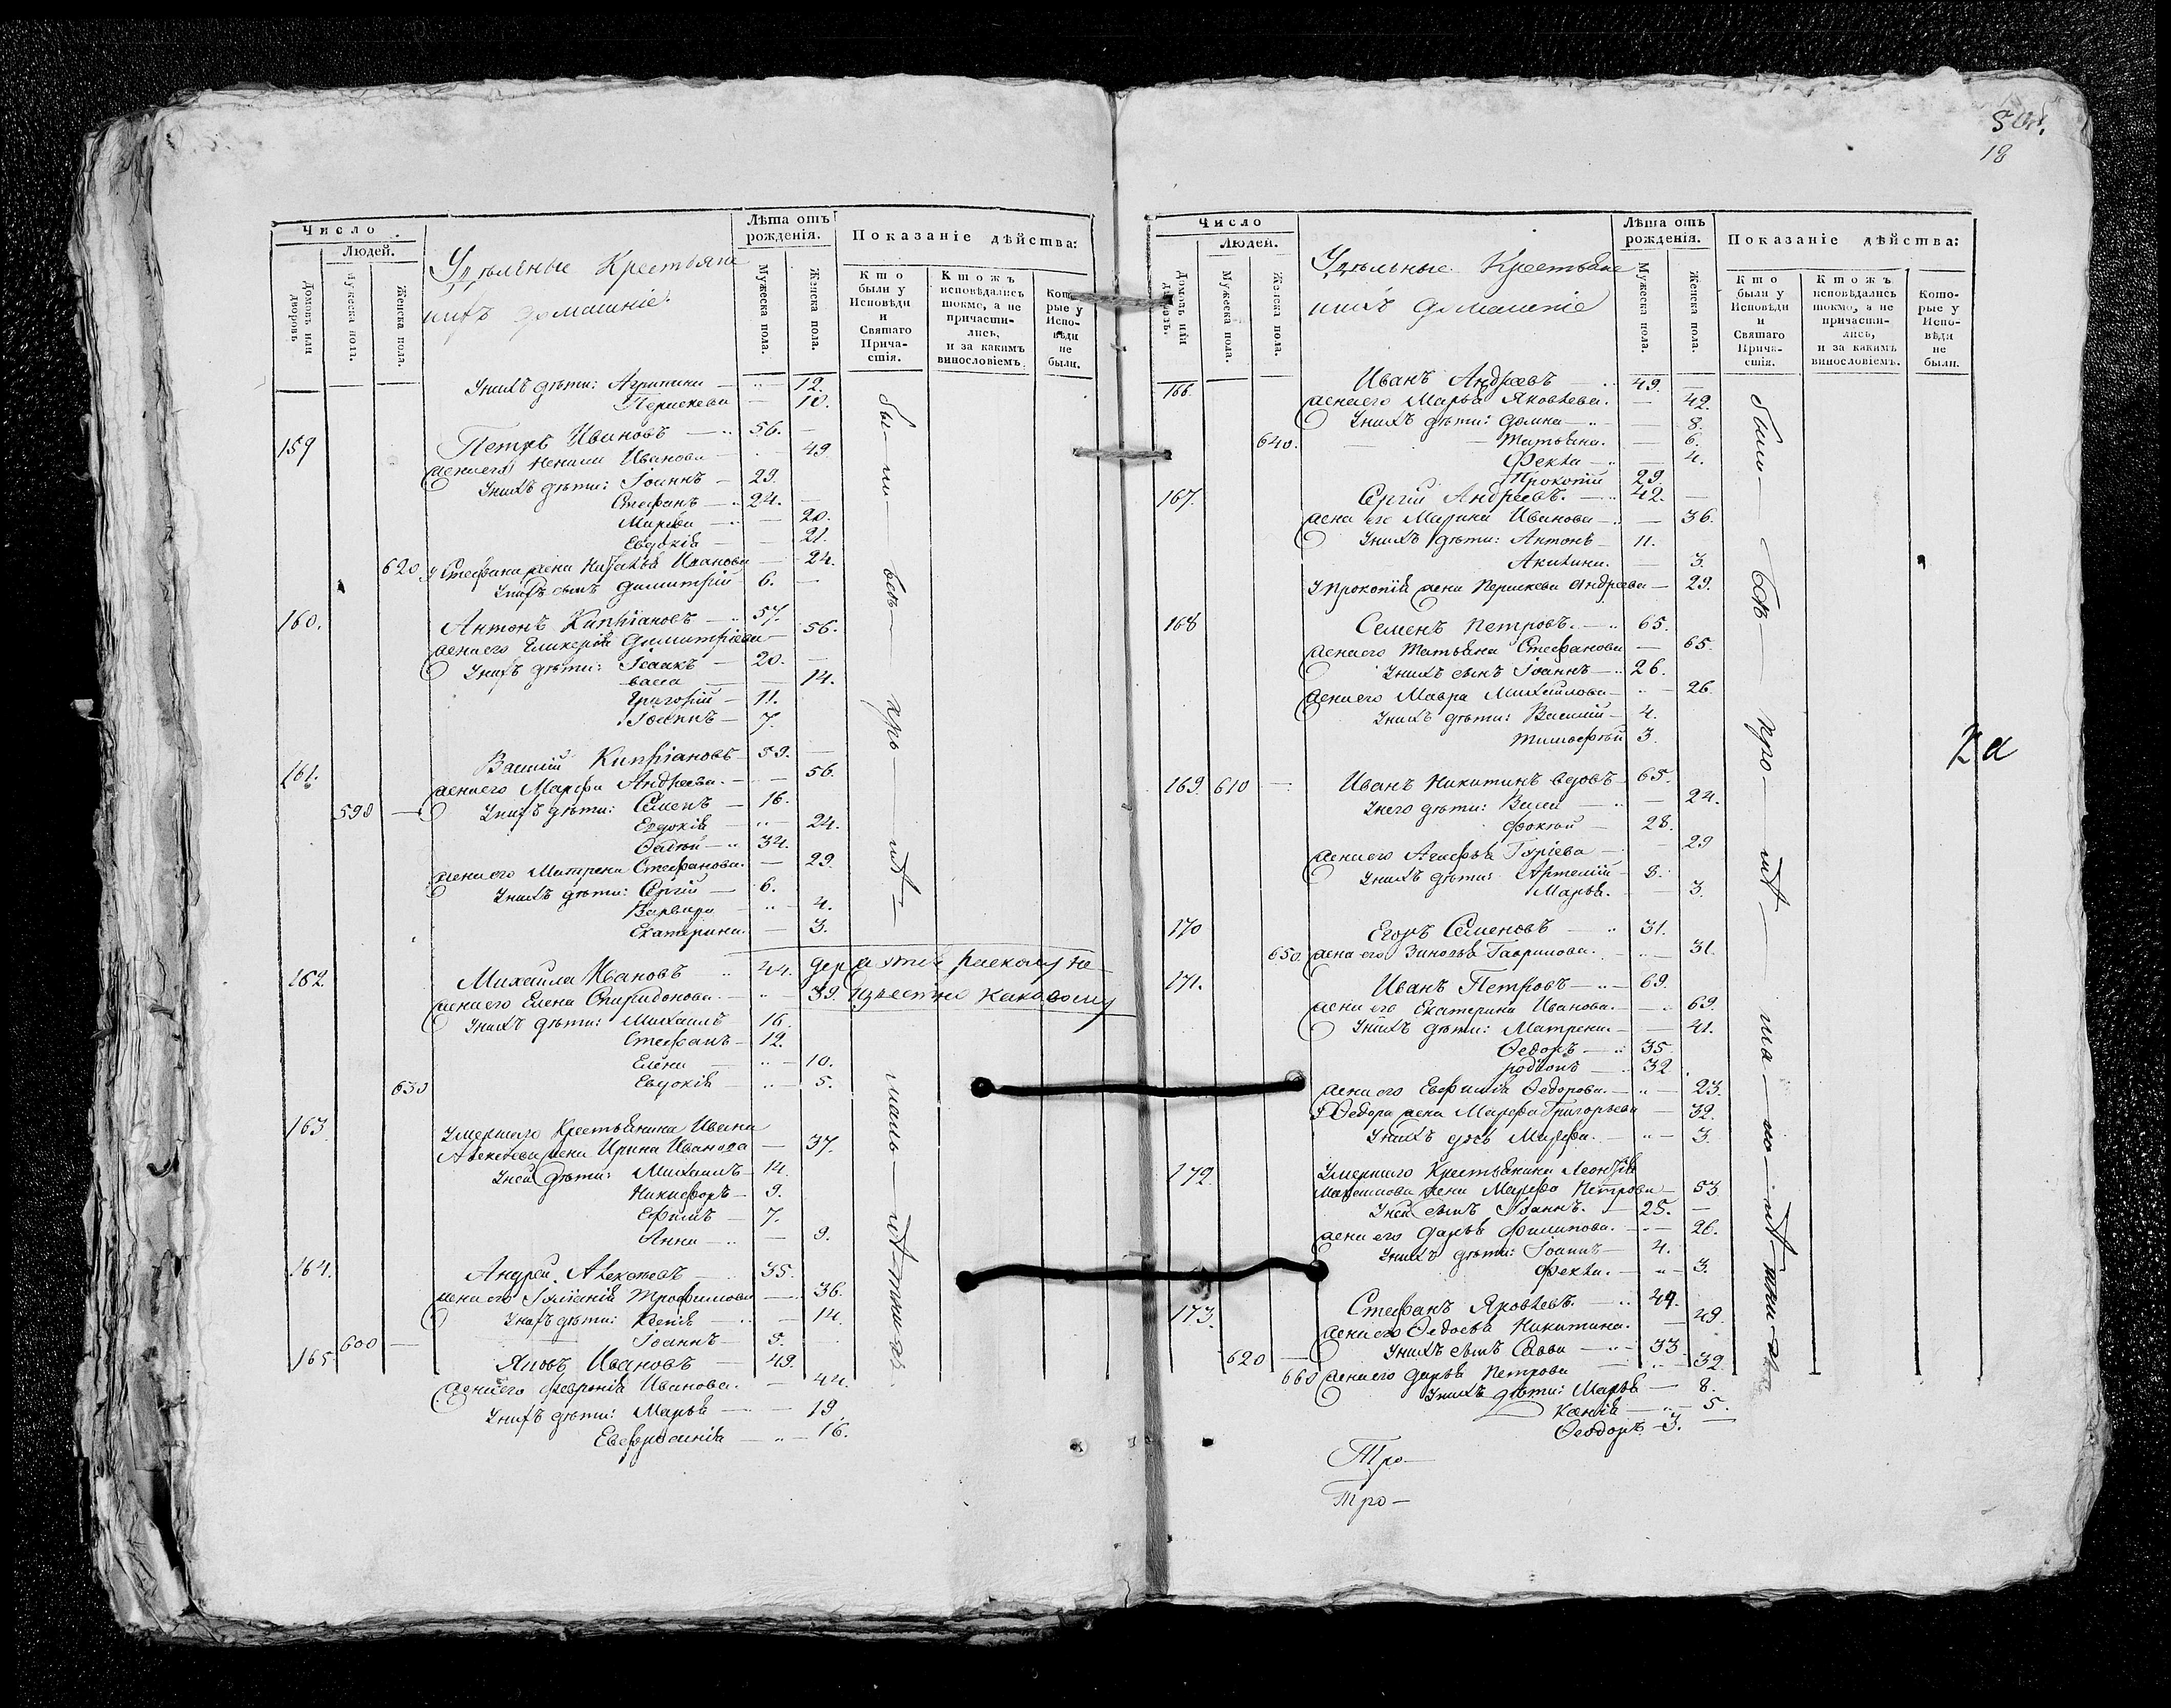 Число
Людей.
Домовъ или дворовъ
Мужеска пола.
Женска пола.
Удѣльные Крестьяне
ихъ домашніе.
Лѣта отъ рожденія.
Мужеска пола.
Женска пола.
Показаніе дѣйства:
Кто были у Исповѣди и Святаго Причастія.
Ктожъ исповѣдались токмо, а не причастились, и за какимъ винословіемъ.
Которые у Исповѣди не были.
У нихъ дѣти: Агрипина — 12.
Параскева — 10.
159 Петръ Ивановъ — 56. —
жена его Ивановa — 49
У нихъ дѣти: Іоаннъ — 29.
Стефанъ — 24. —
Марфа — 20.
Евдокія — 21.
620 У Стефана жена Наталья Иванова — 24.
У нихъ сынъ Димитрій 6. —
160. Антонъ Кипріановъ — 57.
жена его Гликерія Димитріева — 56.
У нихъ дѣти: Исаакъ — 20. —
васса — 14.
Григорій — 11.
Іоаннъ — 7.
161. Василій Кипріановъ 59. —
жена его Марфа Андреева. — 56.
590 — У нихъ дѣти: Семенъ — 16.
Евдокія — 24.
Фадѣй — 34.
жена его Матрена Стефанова. — 29
У нихъ дѣти: Сергій — 6.
Варвара — 4.
Екатерина. — 3.
162. Михаила Ивановъ 44.
жена его Елена Спиридонова. — 39.
держатся расколу не
извѣстно какова му
У нихъ дѣти: Михаилъ 16.
Стефанъ — 12.
Елена — 10.
630 Евдокія — 5.
163. Умершаго Крестьянина Ивана
Алексѣева жена Ирина Иванова — 37.
У ней дѣти: Михаилъ — 14.
Никифоръ — 9.
Ефимъ — 7.
Анна — 9.
164. Андрей Алексѣевъ — 35.
жена его Іуліанія Трофимова — 36.
У нихъ дѣти: Ксенія — 14.
600 — Іоаннъ — 5.
165 Яковъ Ивановъ — 49.
жена его Февронія Иванова. — 44.
У нихъ дѣти: Марья — 19.
Евфросинія — 16.
бы — ли — всѣ — про — тѣ —
18
Число
Людей.
Домовъ или дворовъ.
Мужеска пола.
Женска пола.
Удѣльные Крестьяне
ихъ домашніе
Лѣта отъ рожденія.
Мужеска пола.
Женска пола.
Показаніе дѣйства:
Кто были у Исповѣди и Святаго Причастія.
Ктожъ исповѣдались токмо, а не причастились, и за какимъ винословіемъ.
Которые у Исповѣди не были.
166. Иванъ Андреевъ 49. —
жена его Марья Яковлева. — 42.
У нихъ дѣти: Домна — 8.
640. Татьяна. — 6.
Фекла — 4.
Прокопій 29.
167. Сергій Андреевъ. — 42. —
жена его Марина Иванова — 36.
У нихъ дѣти: Антонъ — 11.
Акилина. — 3.
У Прокопія жена Параскева Андреева — 29.
168 Семенъ Петровъ. — 65.
жена его Татьяна Стефанова — 65.
У нихъ сынъ Іоаннъ — 26.
жена его Мавра Михайлова — 26.
У нихъ дѣти: Василій — 4.
Тимофѣй 3.
169. 610 — Иванъ Никитинъ вдовъ 65.
У него дѣти: Васса — 24.
Фокѣй — 28.
жена его Агафья Гуріева — 29
У нихъ дѣти: Артемій — 8.
Марья. — 3.
170 Егоръ Семеновъ — 31.
650. жена его Зиновья Гаврилова. — 31.
171. Иванъ Петровъ — 69.
жена его Екатерина Иванова. — 69.
У нихъ дѣти: Матрена. — 41.
Федоръ — 35.
Родіонъ — 32.
жена его Евфимія Федорова. — 23.
У Федора жена Марфа Григорьева — 32.
У нихъ дчь Марфа. — 3.
172. Умершаго Крестьянина Леонтія
Максимова жена Марфа Петрова — 53
У ней сынъ Іоаннъ. — 25. —
жена его Дарья Филипова. — 26.
У нихъ дѣти: Іоаннъ — 4.
Фекла. — 3.
173. Стефанъ Яковлевъ. — 49.
жена его Федосья Никитина. — 49.
620 — У нихъ сынъ Савва — 33.
660 жена его Дарья Петрова — 32.
У нихъ дѣти: Марья — 8.
Ксенія — 5.
Феодоръ. — 3. —
были — всѣ — про — тѣ —
Тро —
Тро —